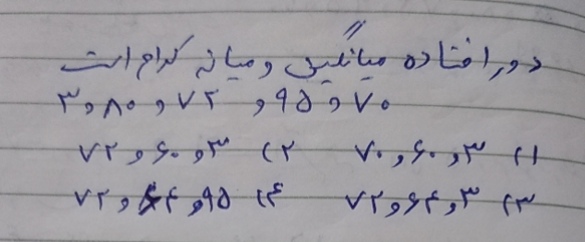 دور افتاده میانگین و میانه کدام است
۷۰ و ۹۵ و ۷۲ و ۸۰ و ۳
۱) ۳ و ۶۰ و ۷۰ ۲) ۳ و ۶۰ و ۷۲
۳) ۳ و ۶۴ و ۷۲ ۴) ۹۵ و ۶۴ و ۷۲